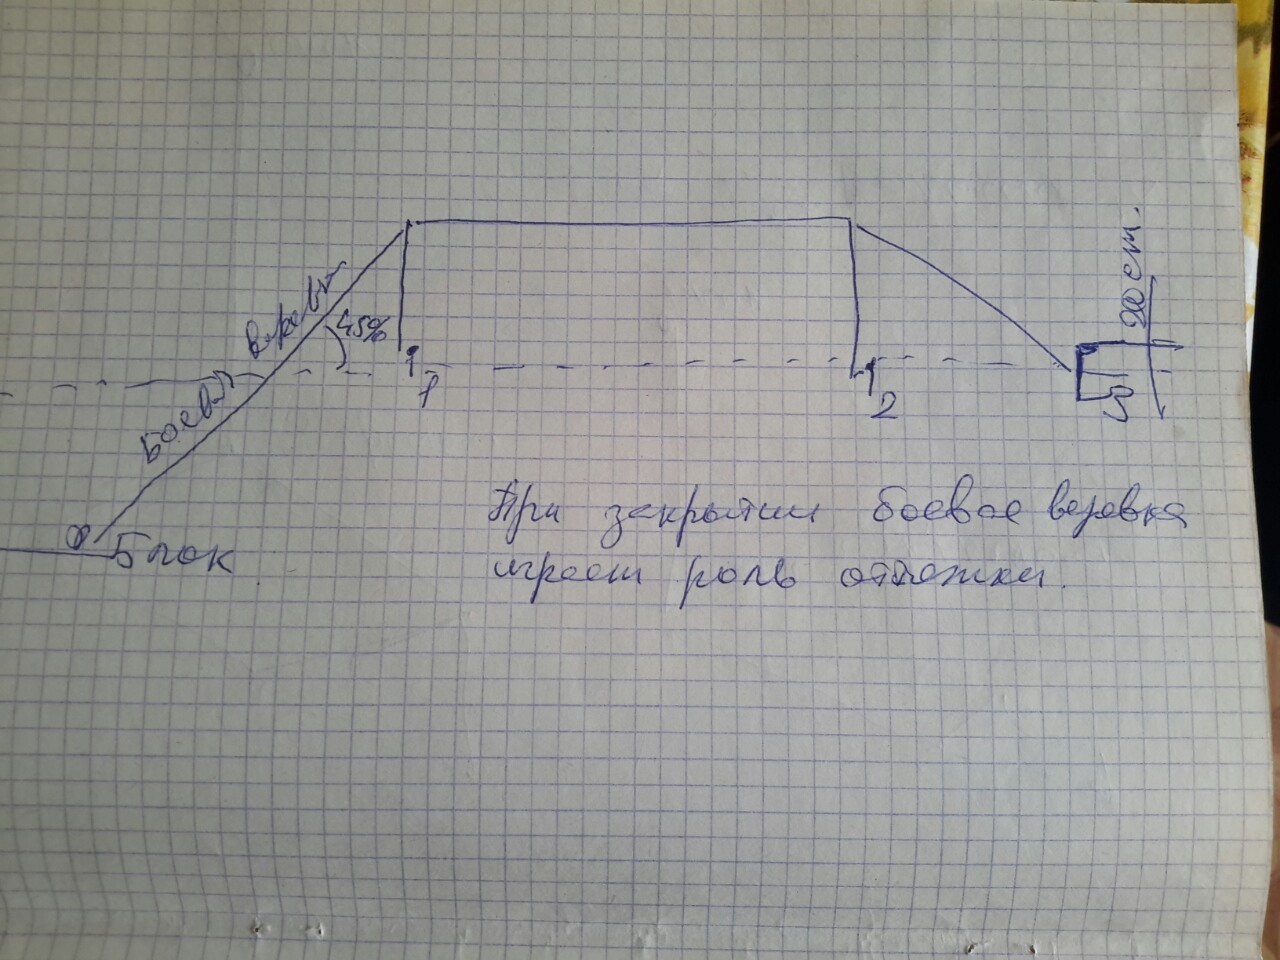 Боевая веревка
45%
1
2
50
200 ст.
Блок
При закрытии боевое веревка
играет роль оттяжки.